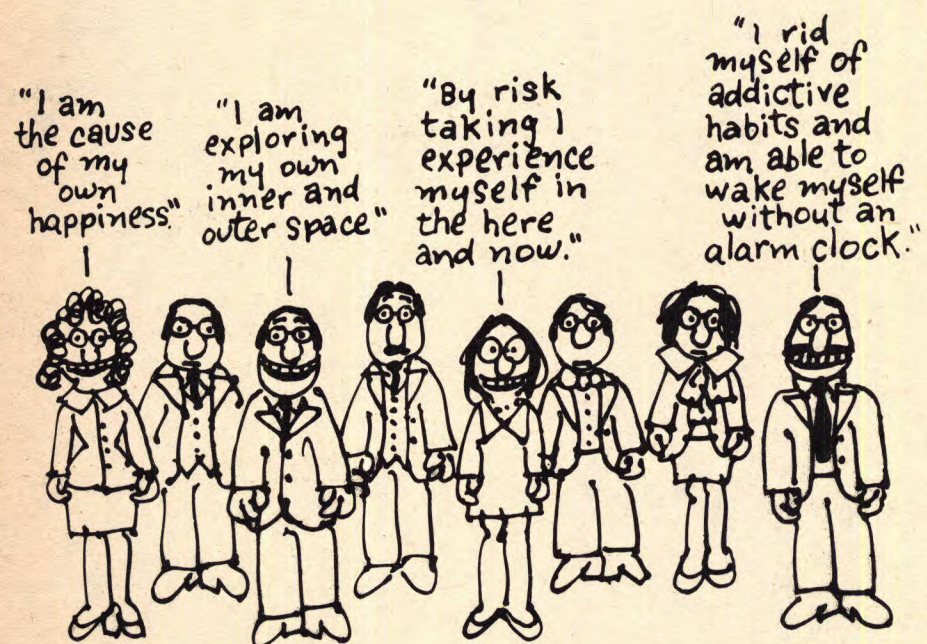 "I am
the cause
of my
own
happiness."
"I am
exploring
my own
inner and
outer space"
"By risk
taking I
experience
myself in
the here
and now."
"I rid
myself of
addictive
habits and
am able to
wake myself
without an
alarm clock."